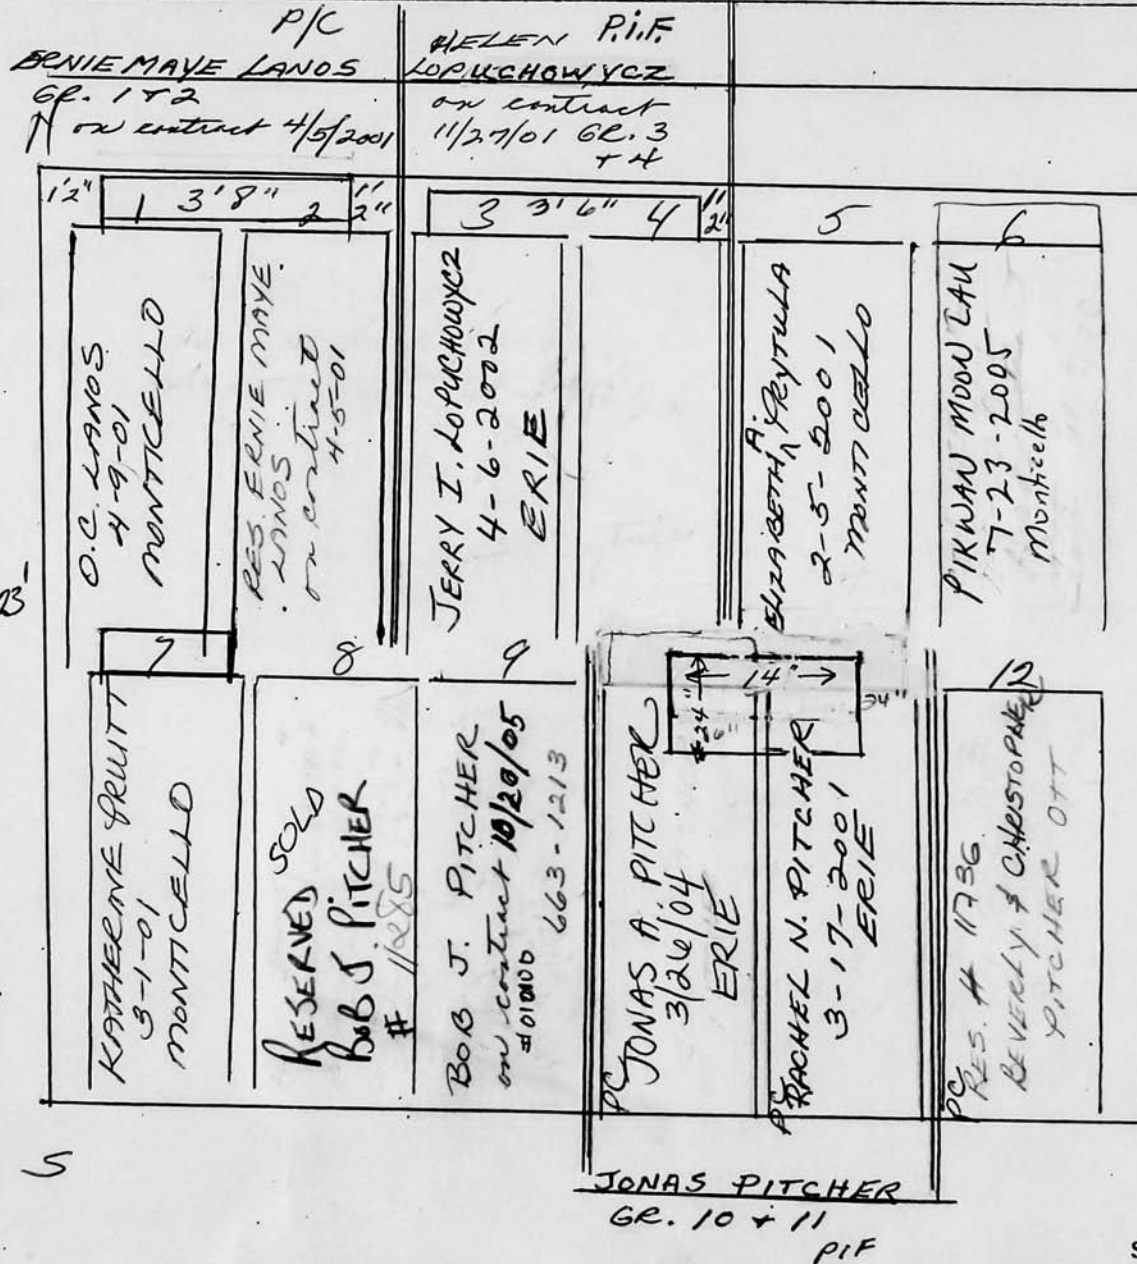 P/C
ERNIE MAYE LANOS
GR. 1 + 2
on contract 4/5/2001
HELEN P.I.F.
LOPUCHOWYCZ
on contract
11/27/01 GR. 3
+ 4
1'2" 1 3'8" 2 1' 2"
3 3'6" 4 1' 2"
5
6
O.C. LANOS
4-9-01
MONTICELLO
RES. ERNIE MAYE
LANOS
on contract
4-5-01
JERRY I. LOPUCHOWYCZ
4-6-2002
ERIE
ELIZABETH A PRYTULA
2-5-2001
MONTICELLO
PIKWAN MOON LAU
7-23-2005
Monticello
7
8
9
14"
24"
6"
24"
12
KATHERINE PRUITT
3-1-01
MONTICELLO
SOLD
RESERVED
BOB J PITCHER
# 11285
BOB J. PITCHER
on contract 10/20/05
#010100 663-1213
PC JONAS A. PITCHER
3/26/04
ERIE
PC RACHEL N. PITCHER
3-17-2001
ERIE
PC RES. # 11736
BEVERLY & CHRISTOPHER
PITCHER OTT
S
JONAS PITCHER
GR. 10 + 11
PIF
S